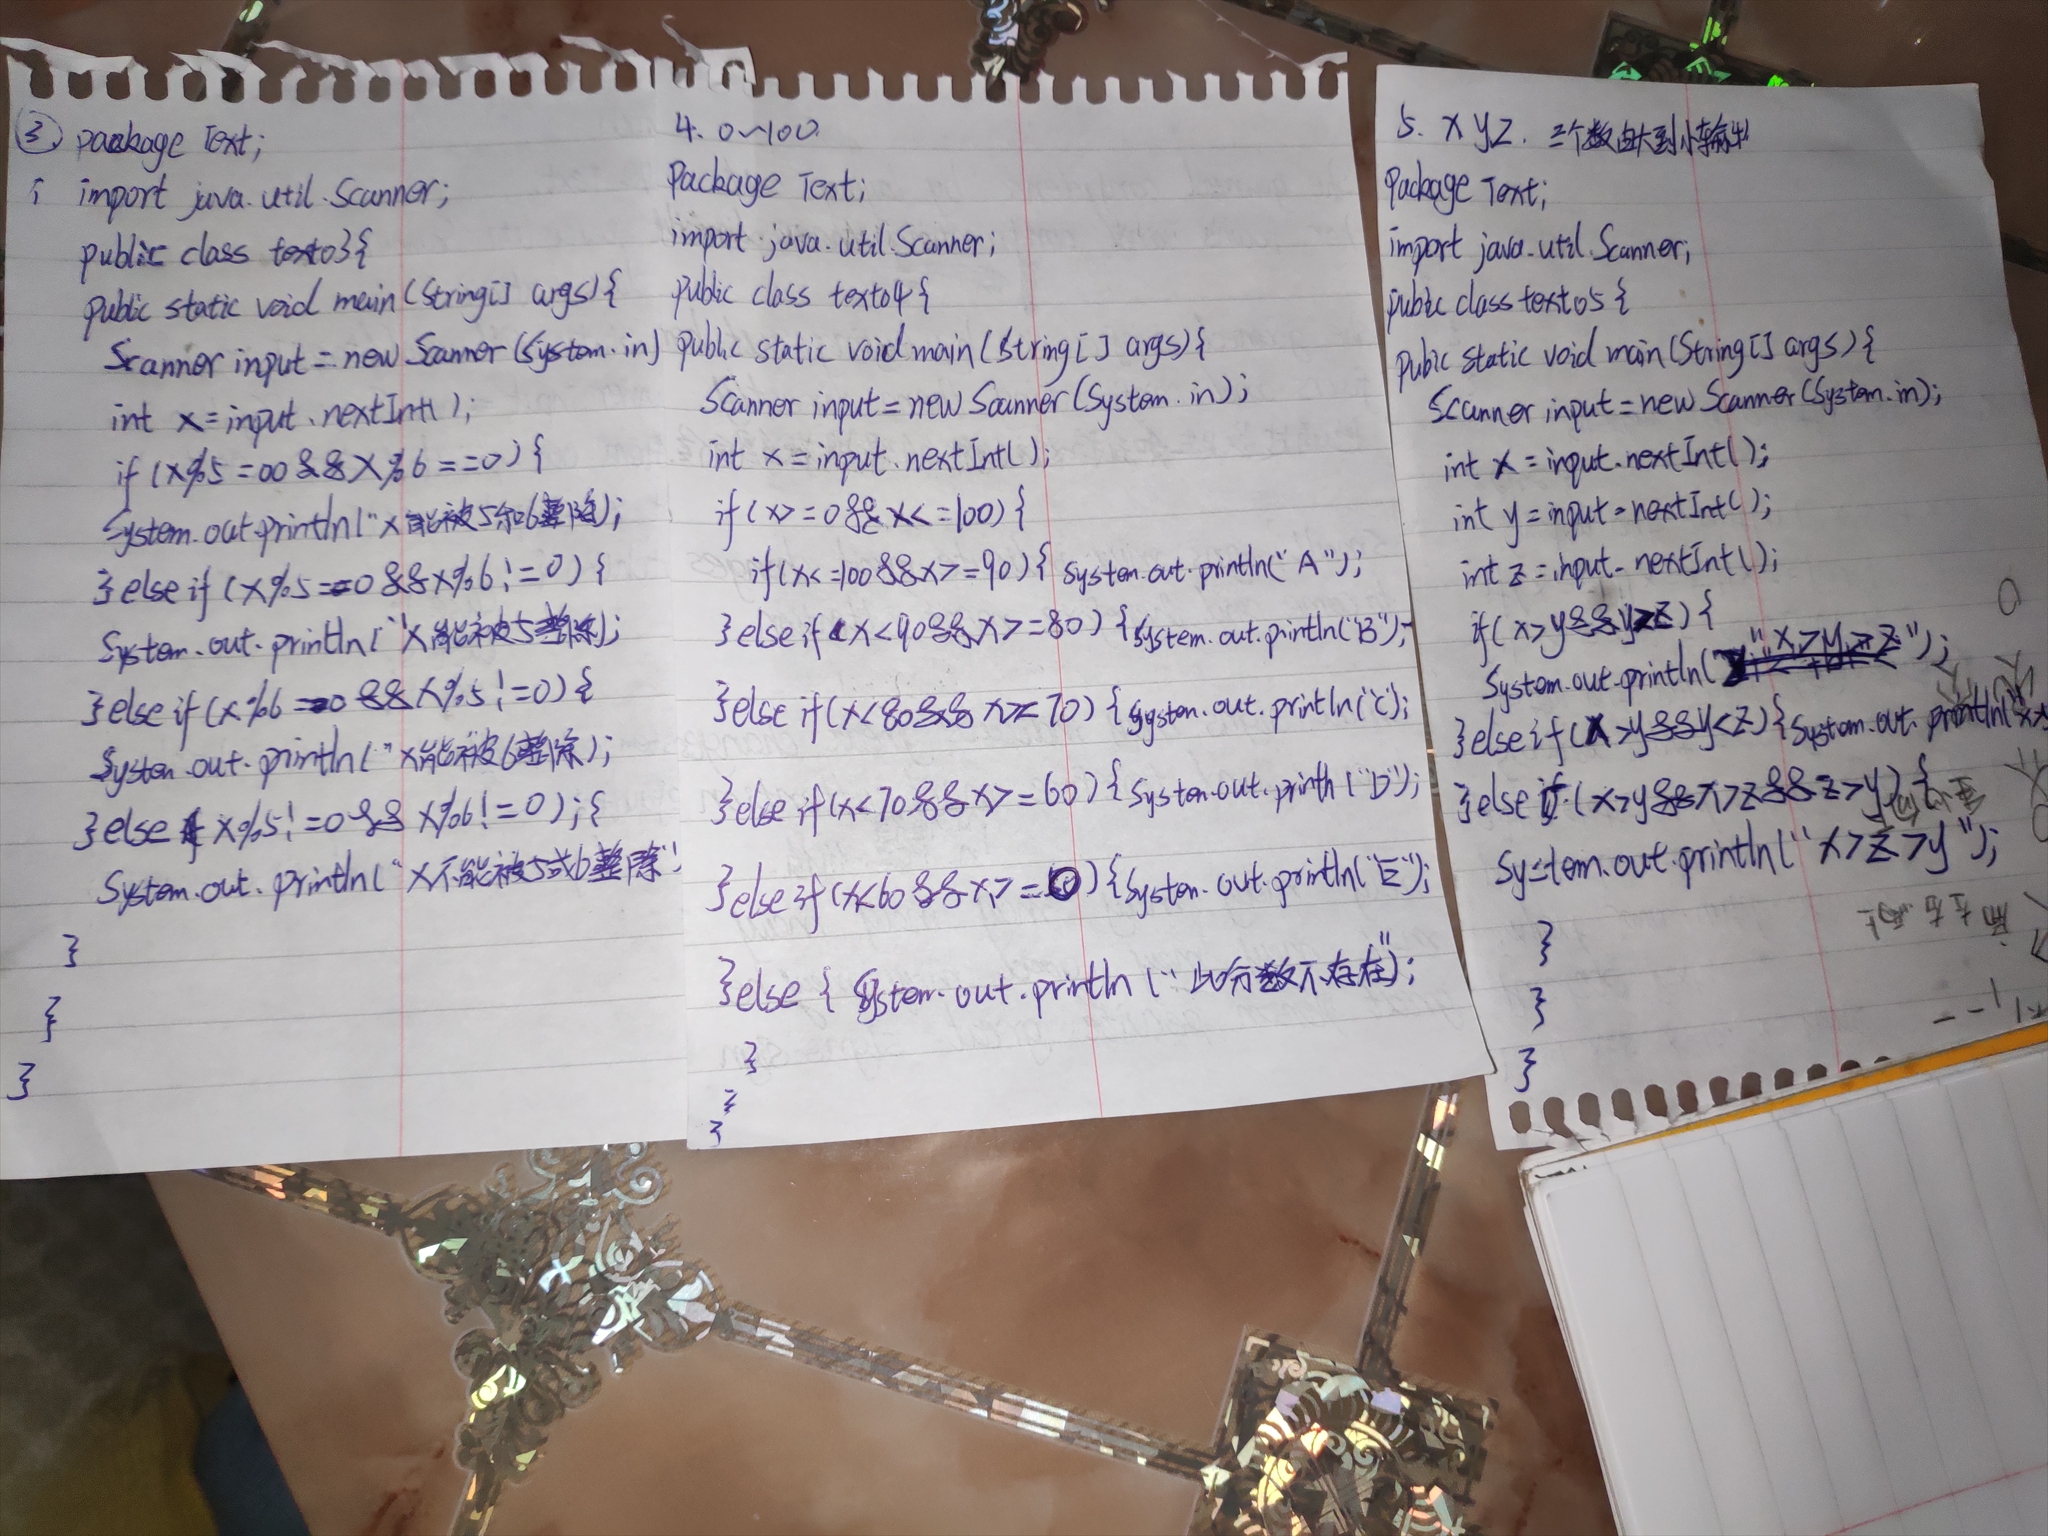 ③ package Text;
import java.util.Scanner;
public class text03{
public static void main(String[] args){
Scanner input=new Scanner(System.in)
int x=input.nextInt();
if(x%5=00&&x%6==0){
System.out.println("x能被5和6整除);
}else if(x%5==0&&x%6!=0){
System.out.println("x能被5整除);
}else if(x%6==0&&x%5!=0){
System.out.println("x能被6整除);
}else if x%5!=0&&x%6!=0);{
System.out.println("x不能被5或6整除"
}
}
}
4. 0~100
package Text;
import java.util.Scanner;
public class text04{
public static void main(String[] args){
Scanner input=new Scanner(System.in);
int x=input.nextInt();
if(x>=0&&x<=100){
if(x<=100&&x>=90){System.out.println("A");
}else if(x<90&&x>=80){System.out.println("B");
}else if(x<80&&x>=70){System.out.println("C);
}else if(x<70&&x>=60){System.out.printh("D");
}else if(x<60&&x>=0){System.out.println("E");
}else{System.out.println("此分数不存在");
}
}
}
5. x y z. 三个数由大到小输出
package Text;
import java.util.Scanner;
public class text05{
pubic static void main(String[] args){
Scanner input=new Scanner(System.in);
int x=input.nextInt();
int y=input.nextInt();
int z=input.nextInt();
if(x>y&&y>z){
System.out.println("x>y>z");
}else if(x>y&&y<z){System.out.println("x>
}else if(x>y&&x>z&&z>y){
System.out.println("x>z>y");
}
}
}